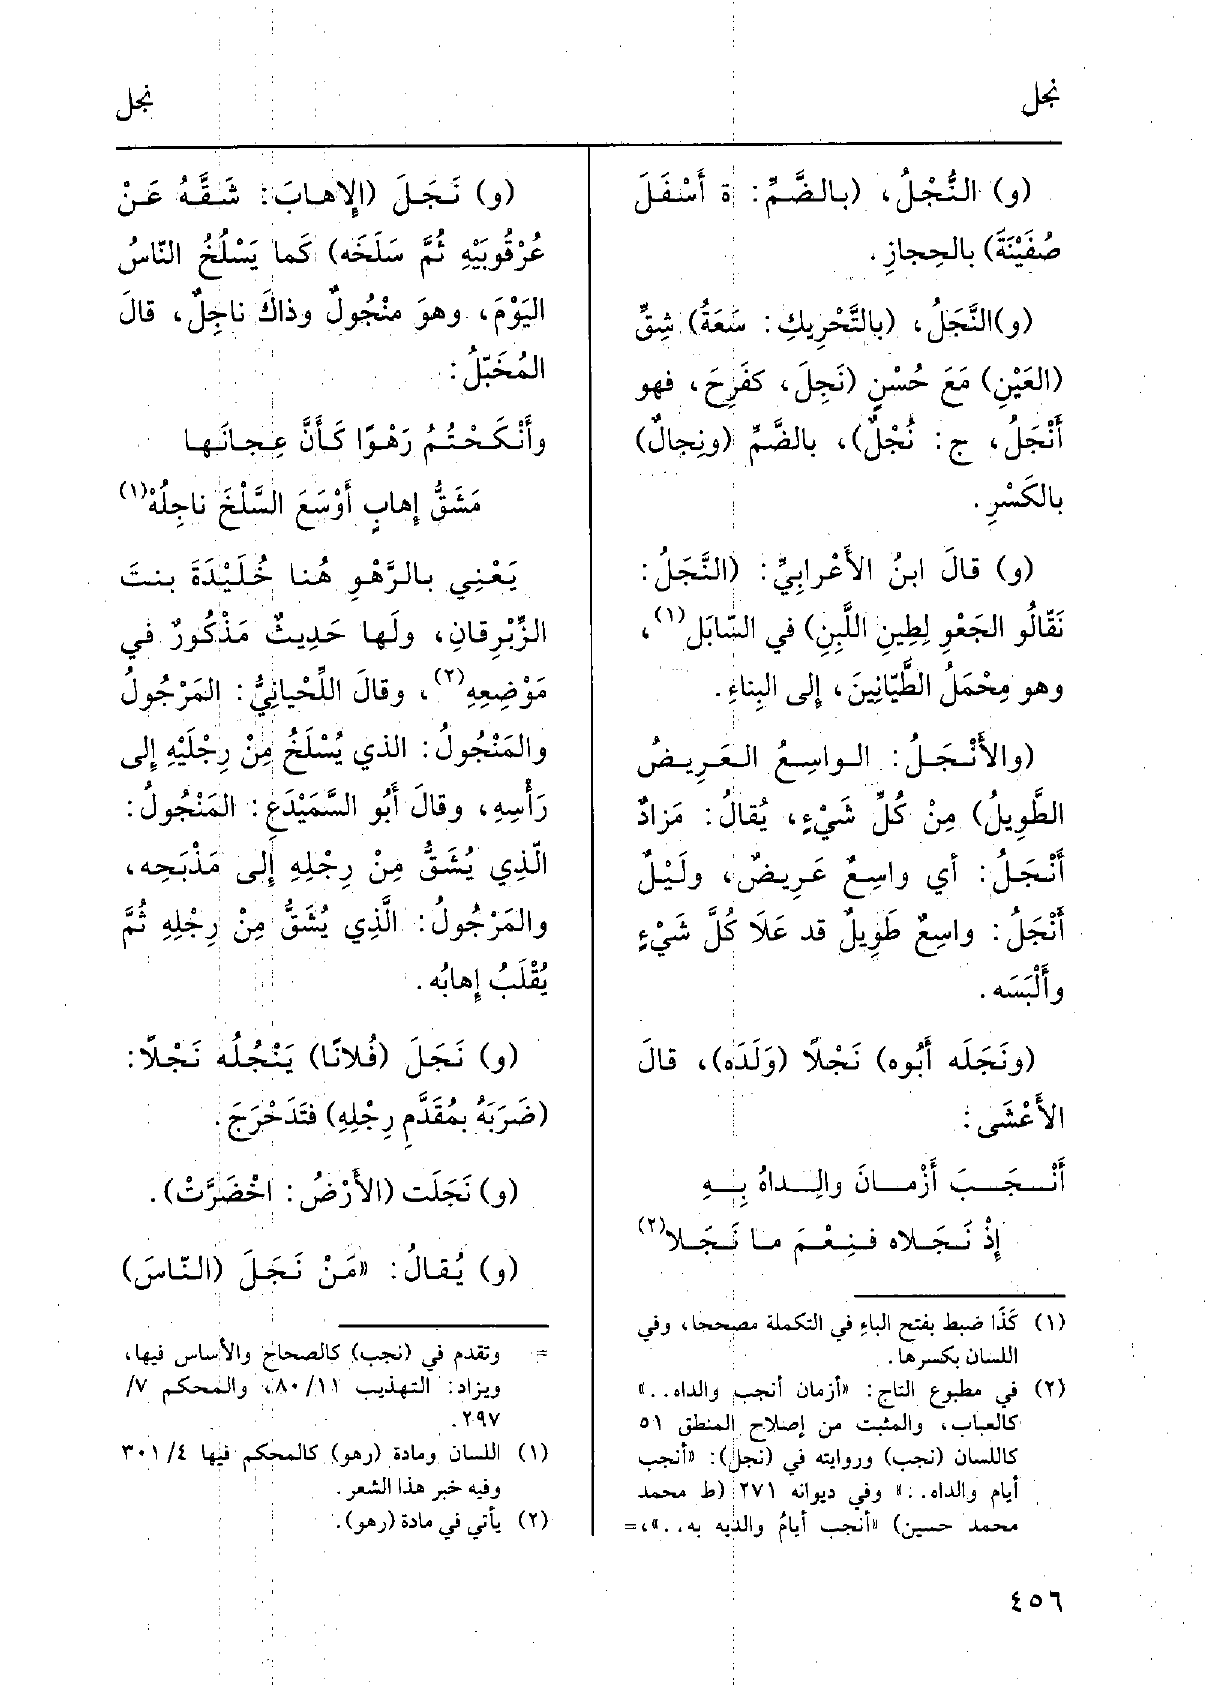 نجل
نجل
(و) النُّجْلُ، (بالضَّمِّ: ة أَسْفَلَ
صُفَيْنَةَ) بالحِجازِ.
(و)النَّجَلُ، (بالتَّحْرِيكِ: سَعَةُ) شِقِّ
(العَيْنِ) مَعَ حُسْنٍ (نَجِلَ، كفَرِحَ، فهو
أَنْجَلُ، ج: نُجْلٌ)، بالضَّمِّ (ونِجالٌ)
بالكَسْرِ.
(و) قالَ ابنُ الأَعْرابِيِّ: (النَّجَلُ:
نَقّالُو الجَعْوِ لِطِينِ اللَّبِنِ) في السّابَل(١)،
وهو مِحْمَلُ الطَّيّانِينَ، إلى البِناءِ.
(والأَنْجَلُ: الواسِعُ العَرِيضُ
الطَّوِيلُ) مِنْ كُلِّ شَيْءٍ، يُقالُ: مَزادٌ
أَنْجَلُ: أي واسِعٌ عَرِيضٌ، ولَيْلٌ
أَنْجَلُ: واسِعٌ طَوِيلٌ قد عَلَا كُلَّ شَيْءٍ
وأَلْبَسَه.
(ونَجَلَه أَبُوه) نَجْلًا (وَلَدَه)، قالَ
الأَعْشَى:
أَنْجَبَ أَزْمانَ والِداهُ بِهِ
إِذْ نَجَلاه فنِعْمَ ما نَجَلا(٢)
(١) كَذَا ضبط بفتح الباءِ في التكملة مصححا، وفي
اللسان بكسرها.
(٢) في مطبوع التاج: «أزمان أنجب والداه..»
كالعباب، والمثبت من إصلاح المنطق ٥١
كاللسان (نجب) وروايته في (نجل): «أنجب
أيام والداه..» وفي ديوانه ٢٧١ (ط محمد
محمد حسين) «أنجب أيامُ والدَيه به..»،=
(و) نَجَلَ (الإهابَ: شَقَّهُ عَنْ
عُرْقُوبَيْهِ ثُمَّ سَلَخَه) كَما يَسْلُخُ النّاسُ
اليَوْمَ، وهوَ منْجُولٌ وذاكَ ناجِلٌ، قالَ
المُخَبّلُ:
وأَنْكَحْتُمُ رَهْوًا كَأَنَّ عِجانَها
مَشَقُّ إهابٍ أَوْسَعَ السَّلْخَ ناجِلُهْ(١)
يَعْنِي بالرَّهْوِ هُنا خُلَيْدَةَ بنتَ
الزِّبْرِقانِ، ولَها حَدِيثٌ مَذْكُورٌ في
مَوْضِعِهِ(٢)، وقالَ اللِّحْيانِيُّ: المَرْجُولُ
والمَنْجُولُ: الذي يُسْلَخُ مِنْ رِجْلَيْهِ إلى
رَأْسِهِ، وقالَ أَبُو السَّمَيْدَعِ: المَنْجُولُ:
الّذِي يُشَقُّ مِنْ رِجْلِهِ إلى مَذْبَحِه،
والمَرْجُولُ: الَّذِي يُشَقُّ مِنْ رِجْلِهِ ثُمَّ
يُقْلَبُ إهابُه.
(و) نَجَلَ (فُلانًا) يَنْجُلُه نَجْلًا:
(ضَرَبَهُ بمُقَدَّمِ رِجْلِهِ) فتَدَحْرَجَ.
(و) نَجَلَت (الأَرْضُ: اخْضَرَّتْ).
(و) يُقالُ: «مَنْ نَجَلَ (النّاسَ)
= وتقدم في (نجب) كالصحاح والأساس فيها،
ويزاد: التهذيب ٨٠/١١، والمحكم ٧/
٢٩٧.
(١) اللسان ومادة (رهو) كالمحكم فيها ٤/ ٣٠١
وفيه خبر هذا الشعر.
(٢) يأتي في مادة (رهو).
٤٥٦